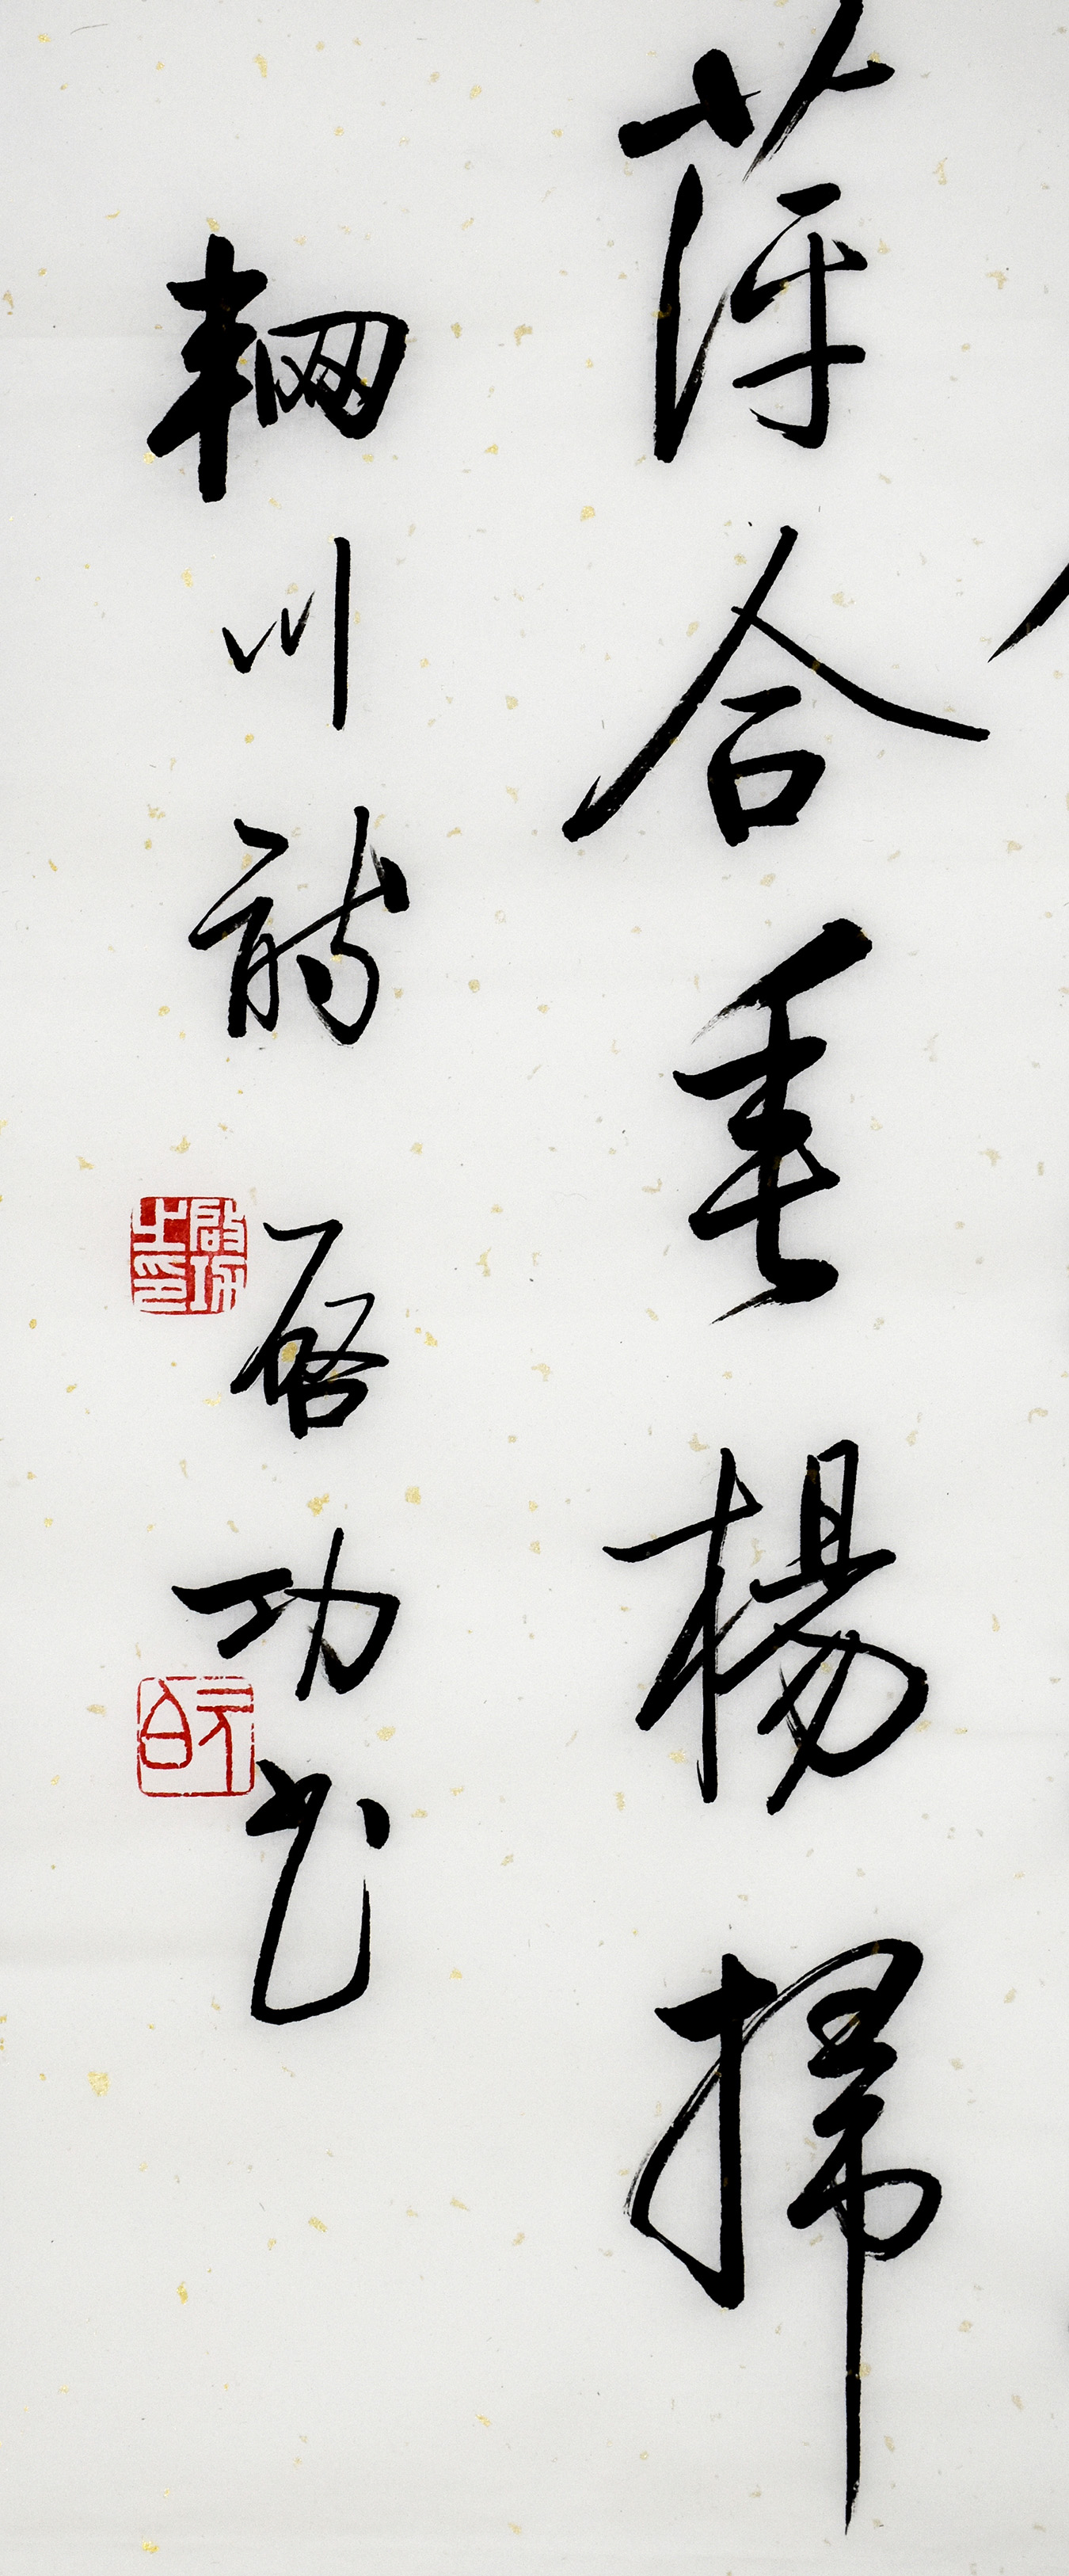 萍合垂楊掃
輞川詩 啟功書
啟功之印
元白